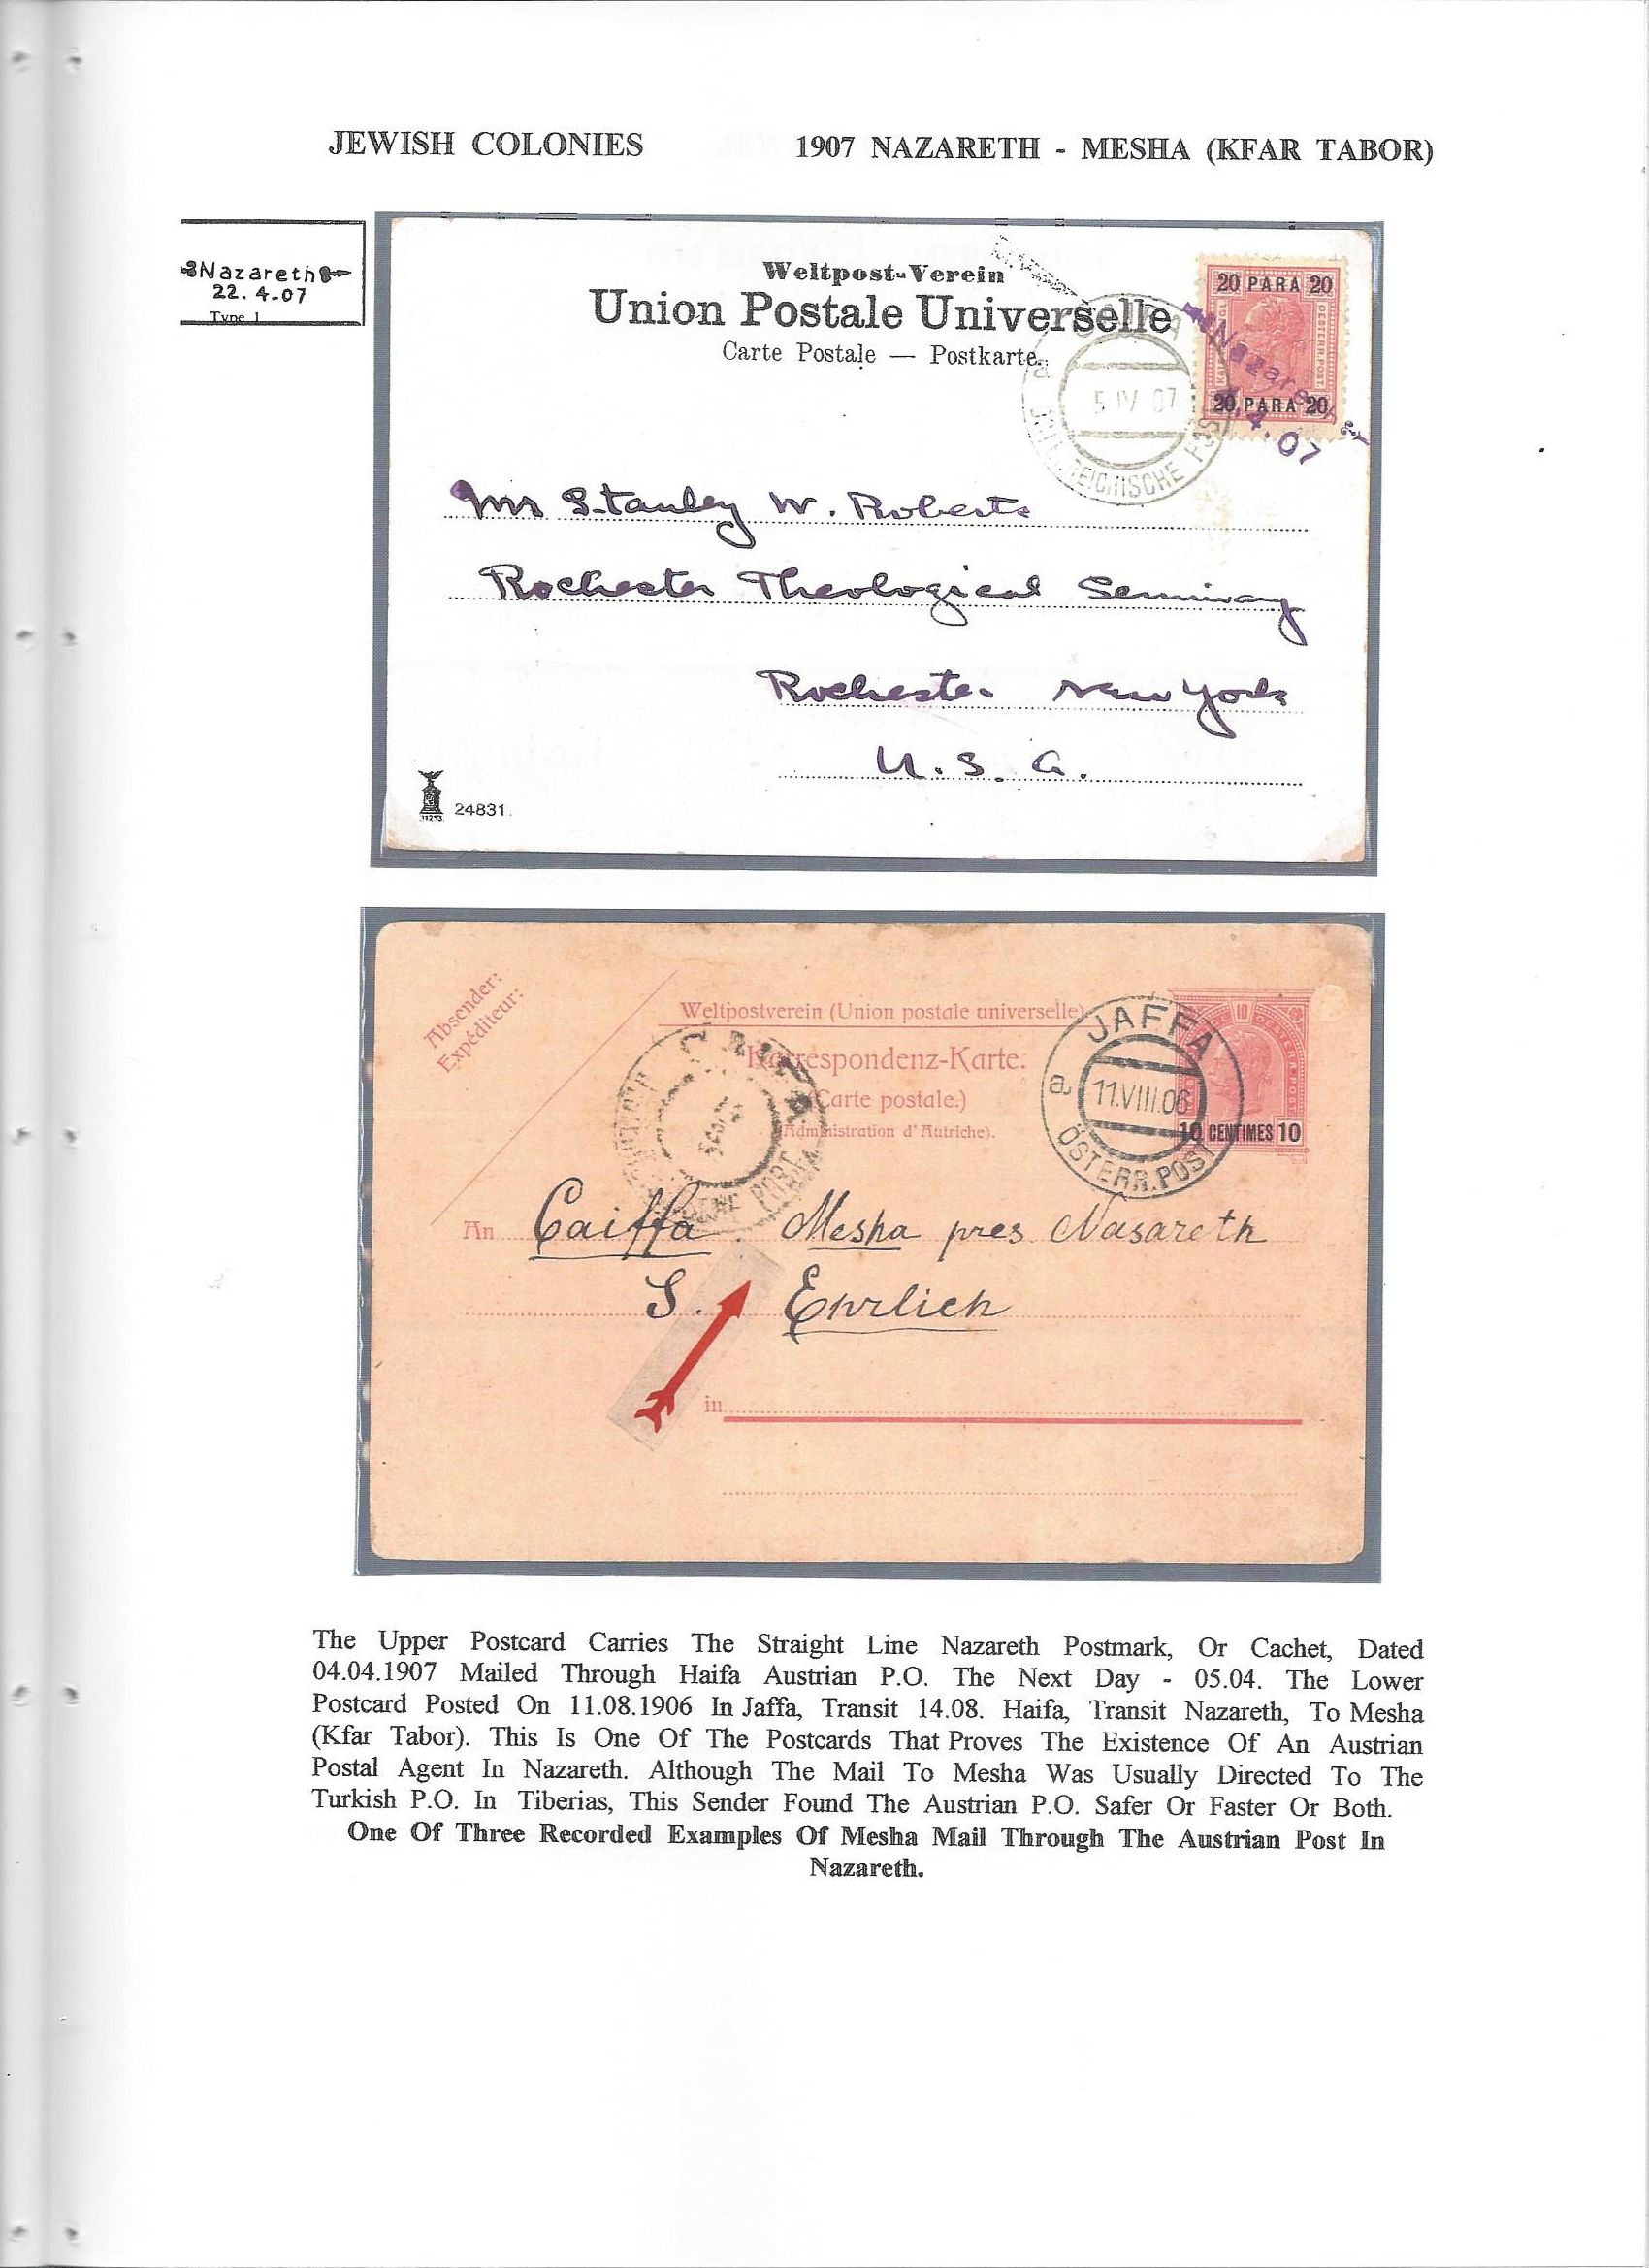 JEWISH COLONIES 1907 NAZARETH - MESHA (KFAR TABOR)
Nazareth
22. 4.07
Type 1
Weltpost-Verein
Union Postale Universelle
Carte Postale — Postkarte.
20 PARA 20
20 PARA 20
OESTERR.POST
Nazareth
4.4.07
a
5 IV 07
Mr Stanley W. Roberts
Rochester Theological Seminary
Rochester New York
U. S. A.
24831.
Absender:
Expéditeur:
Weltpostverein (Union postale universelle)
Korrespondenz-Karte.
(Carte postale.)
(Administration d'Autriche).
10
10 CENTIMES 10
JAFFA
a
11.VIII.06
ÖSTERR.POST
An Caiffa. Mesha pres Nasareth
S. Ehrlich
in
The Upper Postcard Carries The Straight Line Nazareth Postmark, Or Cachet, Dated
04.04.1907 Mailed Through Haifa Austrian P.O. The Next Day - 05.04. The Lower
Postcard Posted On 11.08.1906 In Jaffa, Transit 14.08. Haifa, Transit Nazareth, To Mesha
(Kfar Tabor). This Is One Of The Postcards That Proves The Existence Of An Austrian
Postal Agent In Nazareth. Although The Mail To Mesha Was Usually Directed To The
Turkish P.O. In Tiberias, This Sender Found The Austrian P.O. Safer Or Faster Or Both.
One Of Three Recorded Examples Of Mesha Mail Through The Austrian Post In
Nazareth.